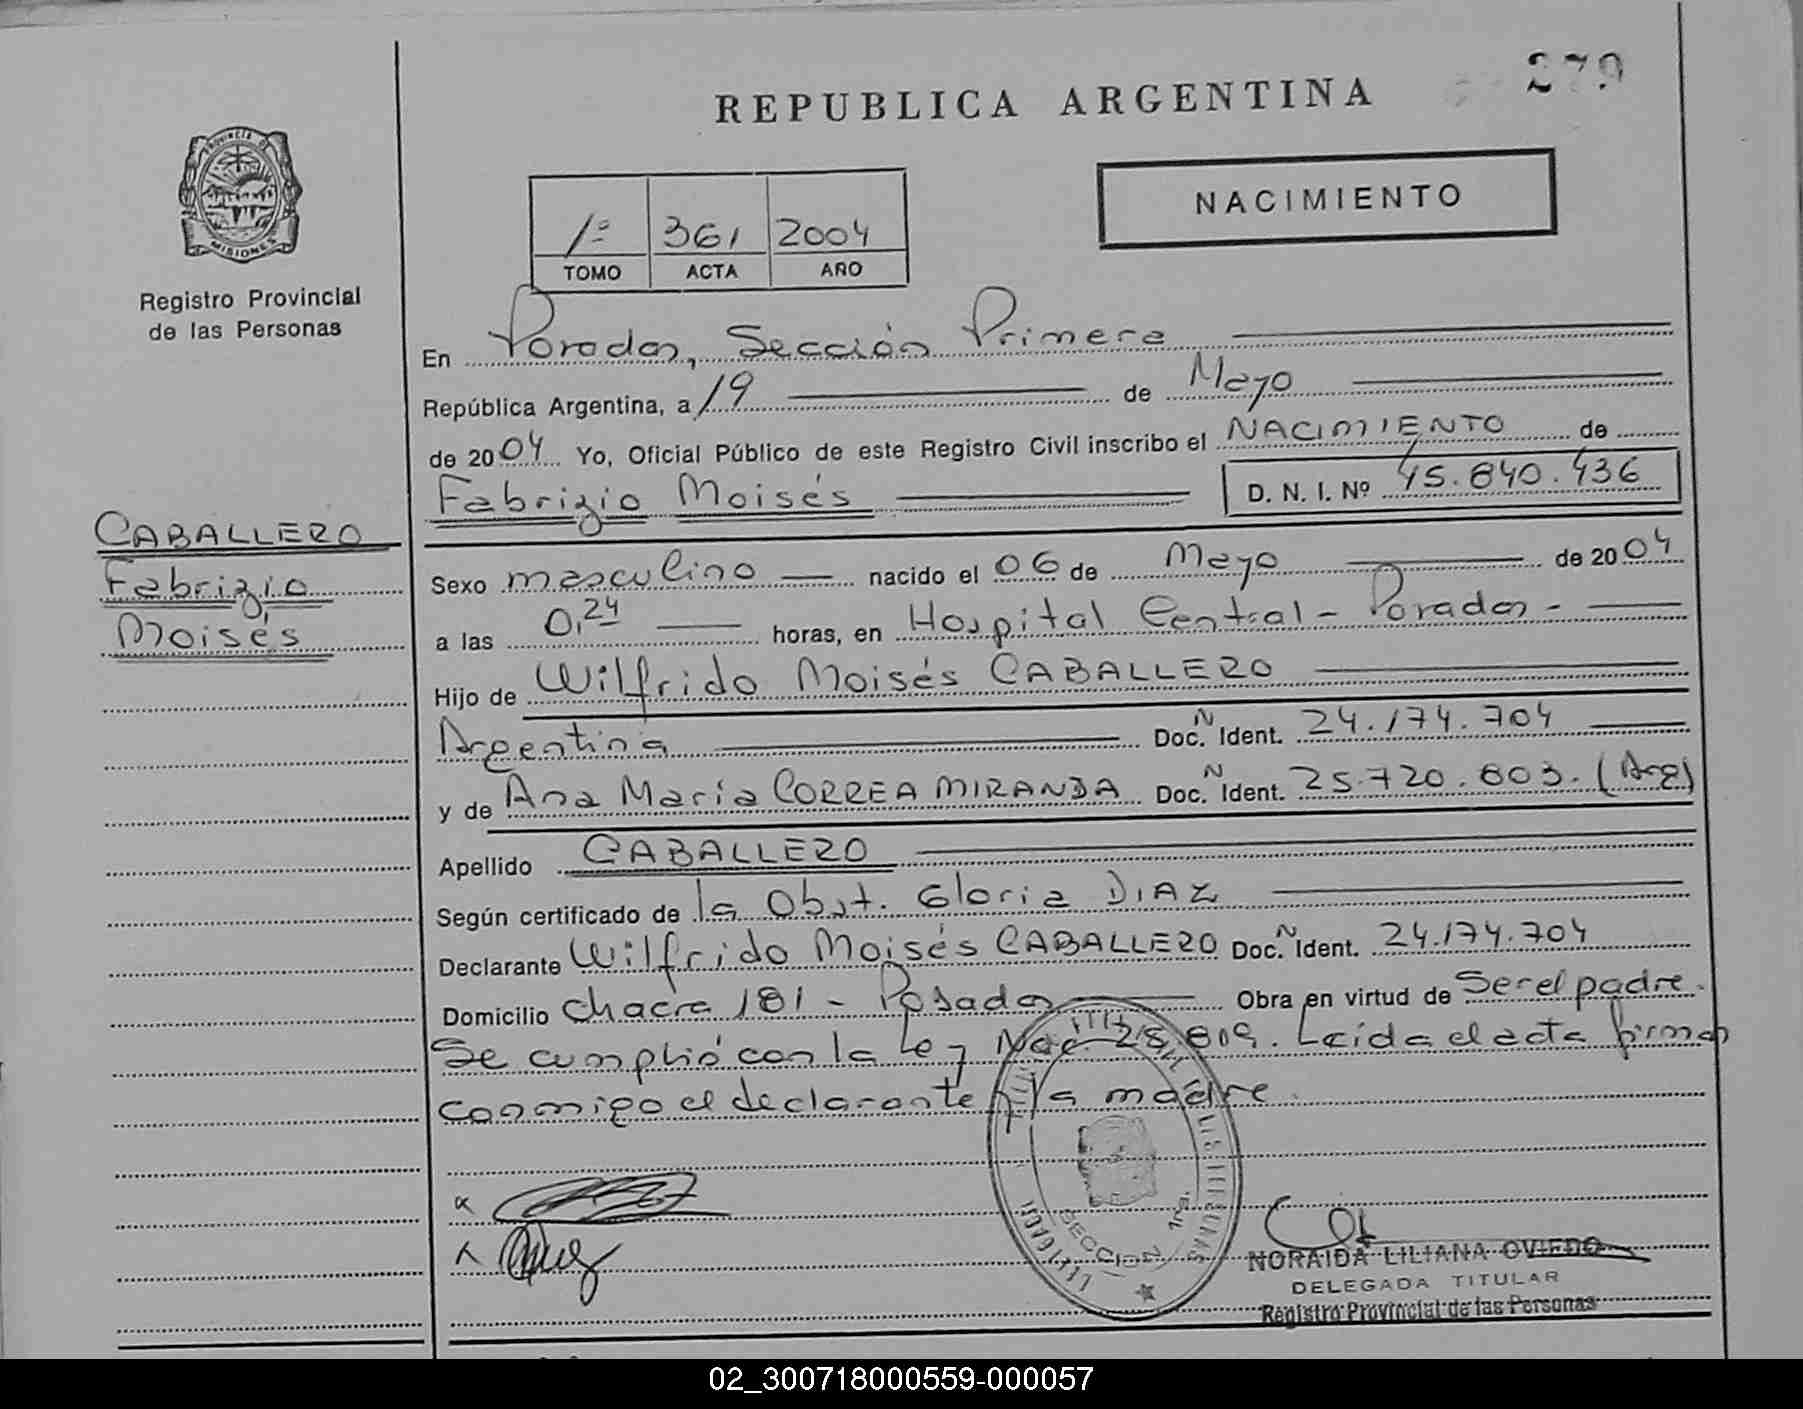 279
REPUBLICA ARGENTINA
PROVINCIA DE
MISIONES
Registro Provincial
de las Personas
NACIMIENTO
1º 361 2004
TOMO ACTA AÑO
En Posadas, Sección Primera
República Argentina, a 19 de Mayo
de 2004 Yo, Oficial Público de este Registro Civil inscribo el NACIMIENTO de
Fabrizio Moisés D. N. I. Nº 45.840.436
CABALLERO
Fabrizio
Moisés
Sexo masculino nacido el 06 de Mayo de 2004
a las 0,24 horas, en Hospital Central - Posadas -
Hijo de Wilfrido Moisés CABALLERO
Argentina Doc. N Ident. 24.174.704
y de Ana María CORREA MIRANDA Doc. N Ident. 25.720.803. (Arg)
Apellido CABALLERO
Según certificado de la Obst. Gloria DIAZ
Declarante Wilfrido Moisés CABALLERO Doc. N Ident. 24.174.704
Domicilio Chacra 181 - Posadas Obra en virtud de Ser el padre.
Se cumplió con la Ley Nac. 25.809. Leída el acta firman
conmigo el declarante y la madre.
SECCION 1ra.
NORAIDA LILIANA OVIEDO
DELEGADA TITULAR
Registro Provincial de las Personas
02_300718000559-000057